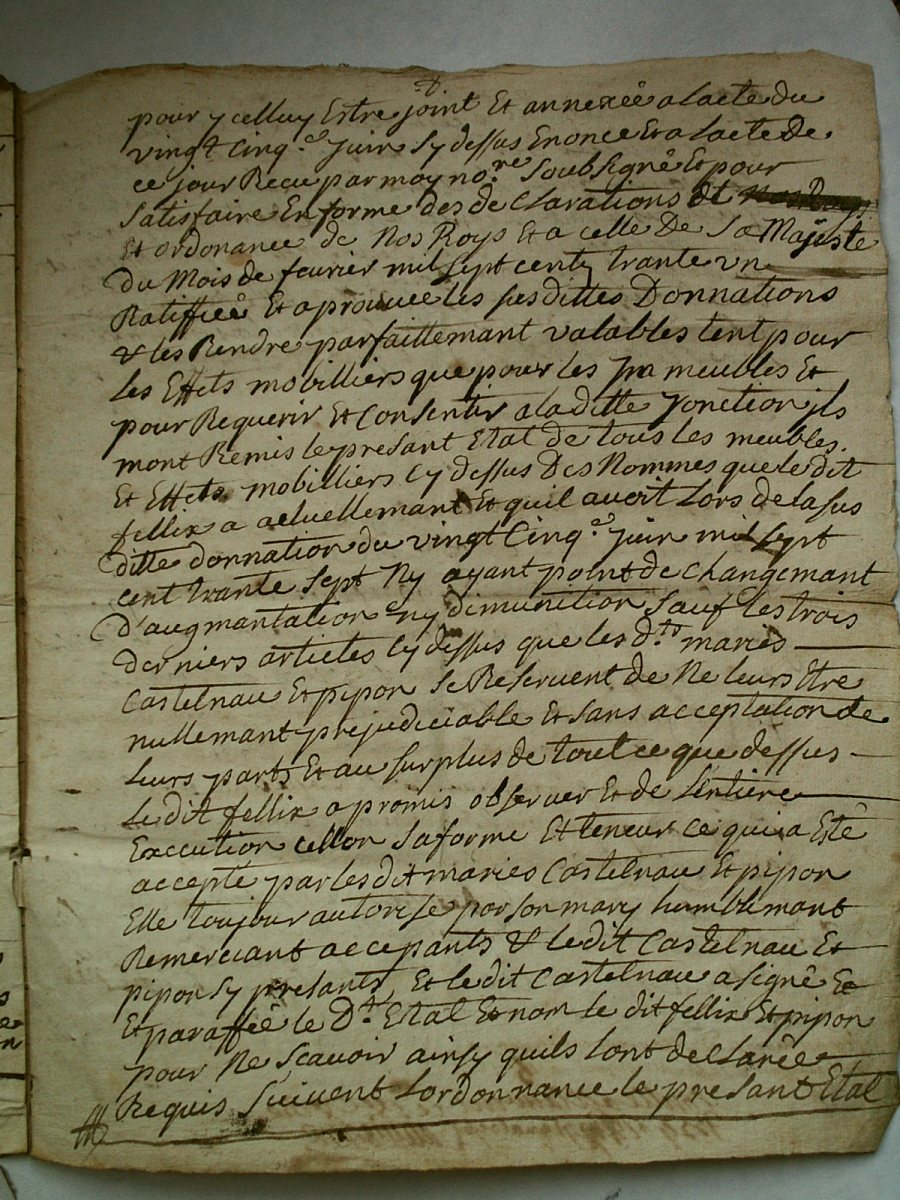 pour y celluy Estre joint Et annexée a lacte du
vingt cinq.e juin sy dessus Enoncé Et a lacte de
ce jour Recu par moy no.re soubsigné Et pour
satisfaire En forme des declarations et
Et ordonance de Nos Roys Et a celle De sa Majeste
du Mois de fevrier mil sept cents trante un
Ratiffiée Et aprouvee les susdittes Donnations
& les Rendre parfaittemant valables tent pour
les Effets mobilliers que pour les Im meubles Et
pour Requerir Et Consentir a laditte Jonction jls
mont Remis le presant Etat de tous les meubles
Et Effets mobilliers Cy dessus Des Nommes que ledit
fellix a actuellemant Et quil avoit Lors de la sus
ditte donnation du vingt Cinq.e juin mil sept
cent trante sept Ny ayant point de changemant
d'augmantation ny dimunition sauf les trois
derniers articles Cy dessus que les d.ts maries
Castelnau Et pipon se Reservent de Ne leurs Etre
nullemant prejudiciable Et sans acceptation de
leurs parts Et au surplus de tout ce que dessus
le dit fellix a promis observer Et de Lentiere
Execution cellon sa forme Et teneur ce qui a Eté
accepté par les dit maries Castelnau Et pipon
Elle toujour autorisé par son mary humblemant
Remerciant accepants & ledit Castelnau Et
pipon sy presants Et le dit Castelnau a signé Et
Et paraffée le D.t Estat Et non le dit fellix Et pipon
pour Ne scavoir ainsy quils lont declarée
Requis suivent Lordonnance le presant Etat